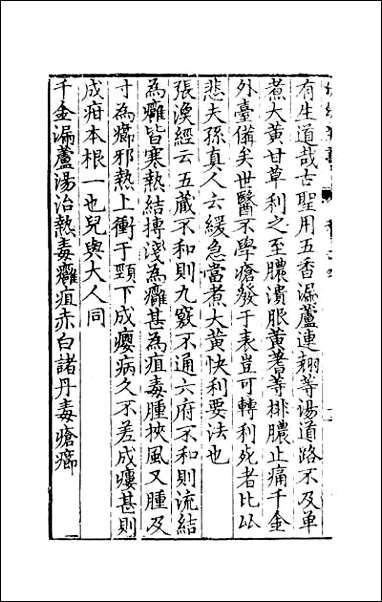 有生道哉古聖用五香漏蘆連翹等湯道路不及單
煮大黃甘草利之至膿潰服黃蓍等排膿止痛千金
外臺備矣世醫不學瘡發于表豈可轉利死者比比
悲夫孫真人云緩急當煮大黃快利要法也
張渙經云五藏不和則九竅不通六府不和則流結
為癰皆寒熱結搏淺為癰甚為疽毒腫挾風又腫及
寸為癤邪熱上衝于頸下成癭病久不差成瘻甚則
成疳本根一也兒與大人同
千金漏蘆湯治熱毒癰疽赤白諸丹毒瘡癤